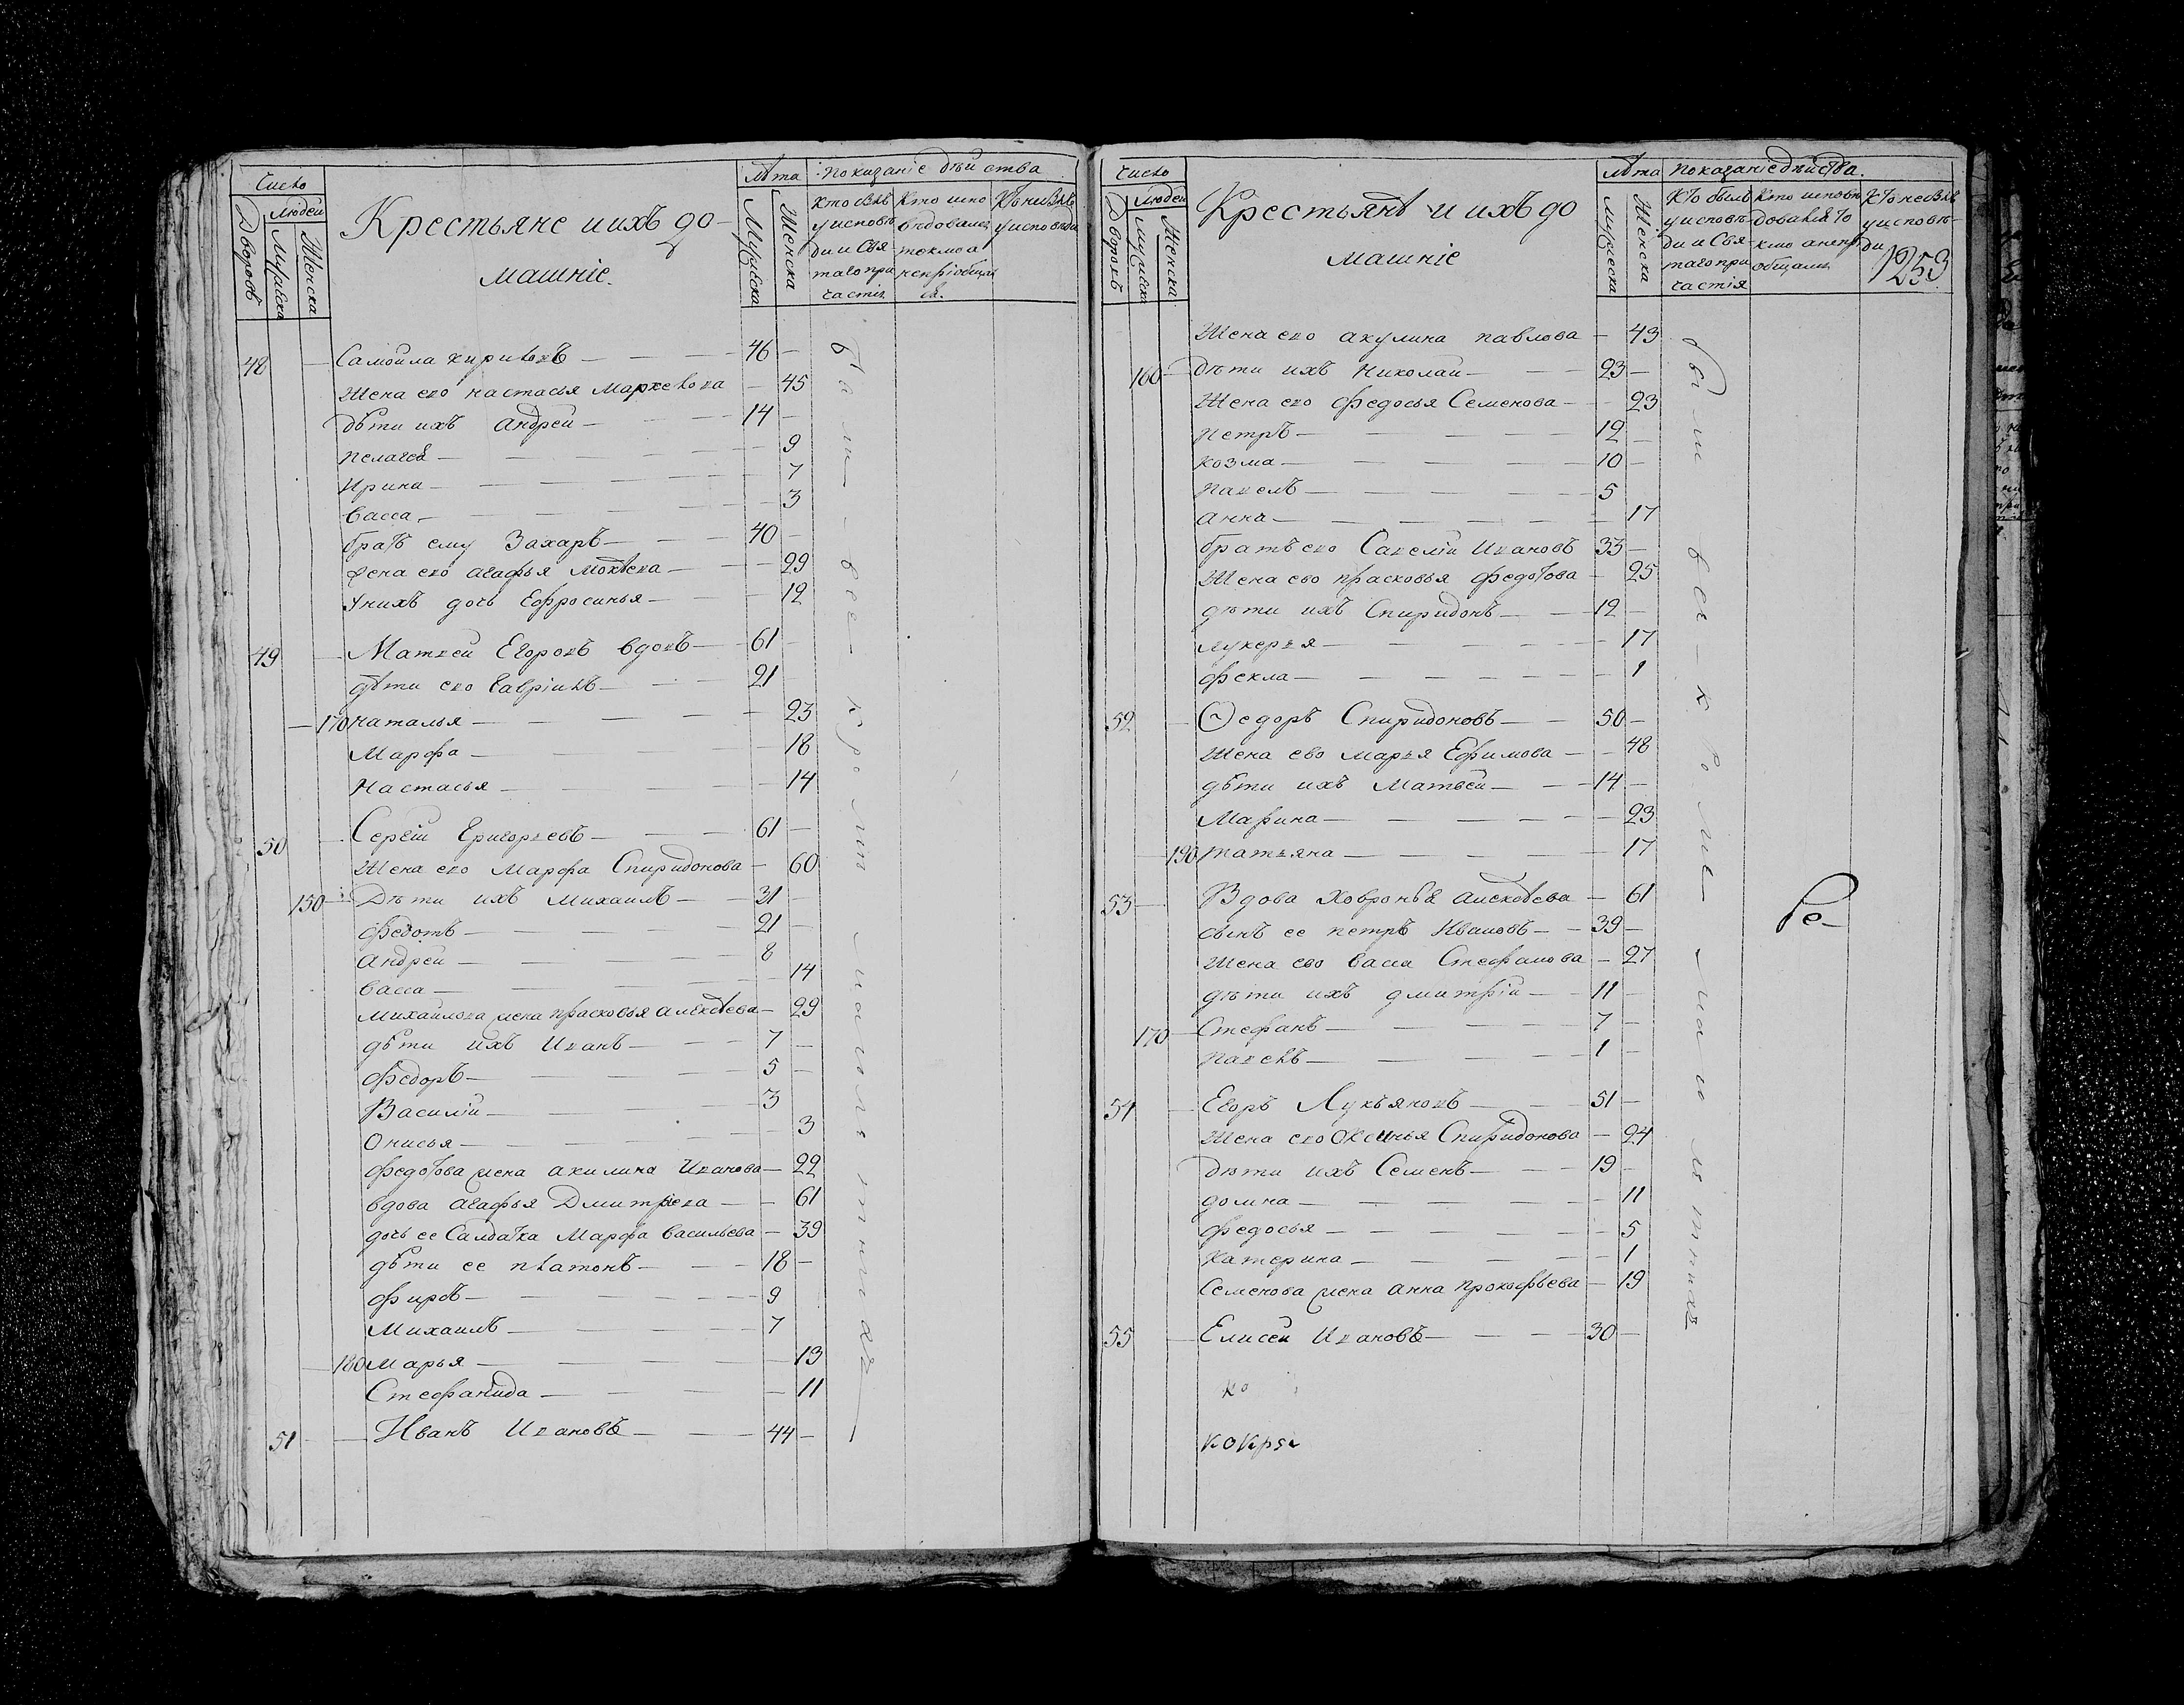 Число
Людей
Дворовъ
Мужеска
Женска
Крестьяне и ихъ до-
машніе.
Лѣта
Мужеска
Женска
Показаніе дѣйства
Кто былъ у исповѣди и святаго причастія
Кто исповѣдовался токмо а непріобщился.
Кто не былъ у исповѣди
48 — Самойла Кириловъ — 46 —
Жена его Настасья Маркелова — 45
Дѣти ихъ Андрей — 14 —
Пелагея — 9
Ирина — 7
Васса — 3
братъ ему Захаръ — 40 —
Жена его Агафья — 29
У нихъ дочь Ефросинья — 12
49 — Матвей Егоровъ вдовъ — 61 —
Дѣти его Гаврилъ — 21
— 170 Наталья — 23
Марфа — 18
Настасья — 14
50 — Сергѣй Григорьевъ — 61 —
Жена его Марфа Спиридонова — 60
150 — Дѣти ихъ Михаилъ — 31 —
Федотъ — 21 —
Андрей — 8
Васса — 14
Михайлова жена Прасковья Алексѣева — 29
Дѣти ихъ Иванъ — 7 —
Федоръ — 5 —
Василій — 3
Онисья — 3
Федотова жена Акилина Иванова — 22
вдова Агафья Дмитрева — 61
дочь ее Салдатка Марфа Васильева — 39
дѣти ее Платонъ — 18 —
Фирсъ — 9
Михаилъ — 7
— 180 Марья — 13
Стефанида — 11
51 — Иванъ Ивановъ — 44 —
были все
Число
Людей
Дворовъ
Мужеска
Женска
Крестьянѣ и ихъ до
машніе
Лѣта
Мужеска
Женска
Показаніе дѣйства.
Кто былъ у исповѣди и Святаго причастія
Кто не былъ у исповѣди
1253
Жена его Акулина Павлова — 43
160 — Дѣти ихъ Николай — 23 —
Жена его Федосья Семенова — 23
Петръ — 12 —
Козма — 10 —
Павелъ — 5
Анна — 17
братъ его Савелій Ивановъ 33 —
Жена ево Прасковья Федотова — 25
дѣти ихъ Спиридонъ — 12 —
Лукерья — 17
Фекла — 1
52 — Ѳедоръ Спиридоновъ — 50 —
Жена ево Марья Ефимова — 48
дѣти ихъ Матвей — 14 —
Марина — 23
— 190 Татьяна — 17
53 — Вдова Ховронья Алексѣева — 61
сынъ ее Петръ Ивановъ — 39 —
Жена ево Васса Стефанова — 27
дѣти ихъ Дмитрій — 11 —
170 — Стефанъ — 7 —
Павелъ — 1 —
54 — Егоръ Лукьяновъ — 51 —
Жена его Ксенья Спиридонова — 24
Дѣти ихъ Семенъ — 19 —
Домна — 11
Федосья — 5
Катерина — 1
Семенова жена Анна Прокофьева — 19
55 — Елисей Ивановъ — 30 —
были все кроме малолѣтнихъ
Ре-